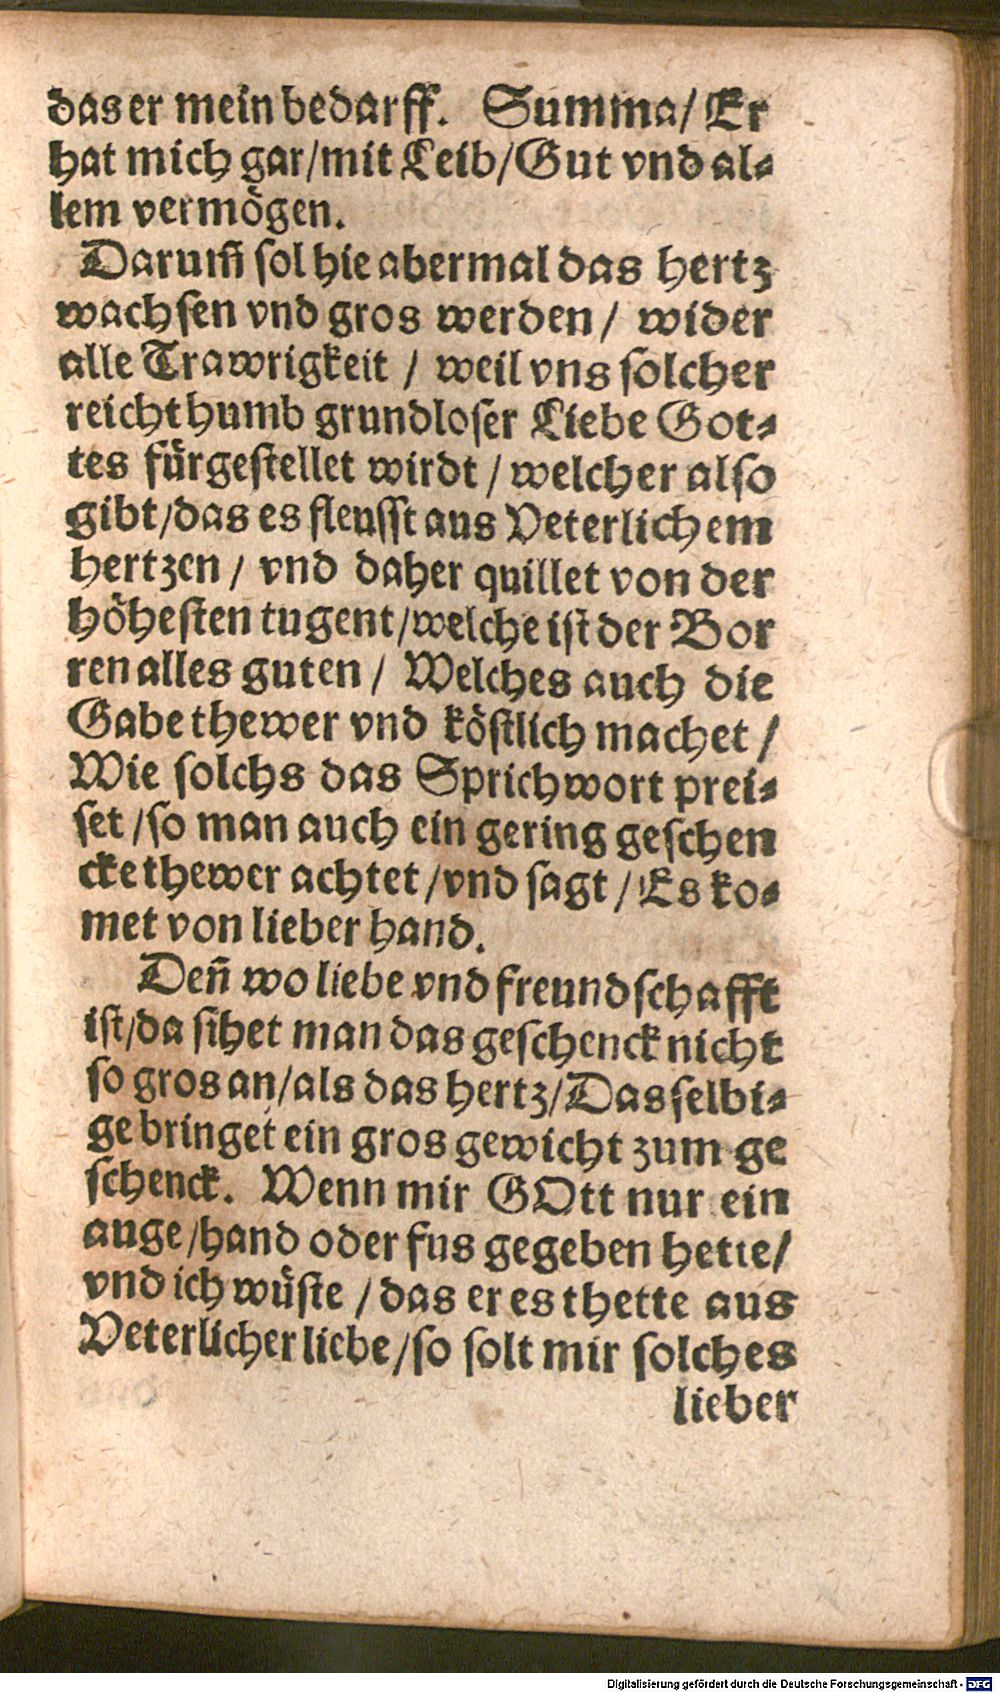 das er mein bedarff. Summa/ Er
hat mich gar/mit Leib/Gut vnd al-
lem vermögen.
Darum̃ sol hie abermal das hertz
wachsen vnd gros werden/ wider
alle Trawrigkeit / weil vns solcher
reichthumb grundloser Liebe Got-
tes fürgestellet wirdt / welcher also
gibt/das es fleusst aus Veterlichem
hertzen / vnd daher quillet von der
höhesten tugent/welche ist der Bor
ren alles guten / Welches auch die
Gabe thewer vnd köstlich machet /
Wie solchs das Sprichwort prei-
set /so man auch ein gering geschen
cke thewer achtet /vnd sagt / Es ko-
met von lieber hand.
Deñ wo liebe vnd freundschafft
ist/da sihet man das geschenck nicht
so gros an/als das hertz/Dasselbi-
ge bringet ein gros gewicht zum ge
schenck. Wenn mir GOtt nur ein
auge /hand oder fus gegeben hette/
vnd ich wüste / das er es thette aus
Veterlicher liebe/so solt mir solches
lieber
Digitalisierung gefördert durch die Deutsche Forschungsgemeinschaft - DFG